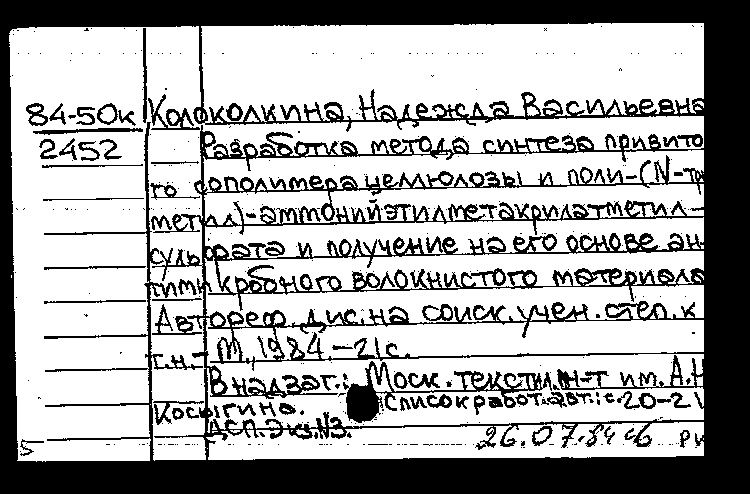 84-50к Колоколкина, Надежда Васильевна
2452 Разработка метода синтеза привито
го сополимера целлюлозы и поли-(N-тр
метил)-аммонийэтилметакрилатметил-
сульфата и получение на его основе ан-
тимикробного волокнистого материала
Автореф. дис. на соиск. учен. степ. к
т.н. - М., 1984. - 21с.
В надзаг.: Моск. текстил. ин-т им. А.Н
Косыгина. Список работ авт.: с. 20-21
ДСП. Экз. N3.
26.07.84 ри
5